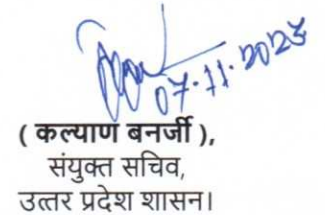 07.11.2023
( कल्याण बनर्जी ),
संयुक्त सचिव,
उत्तर प्रदेश शासन।